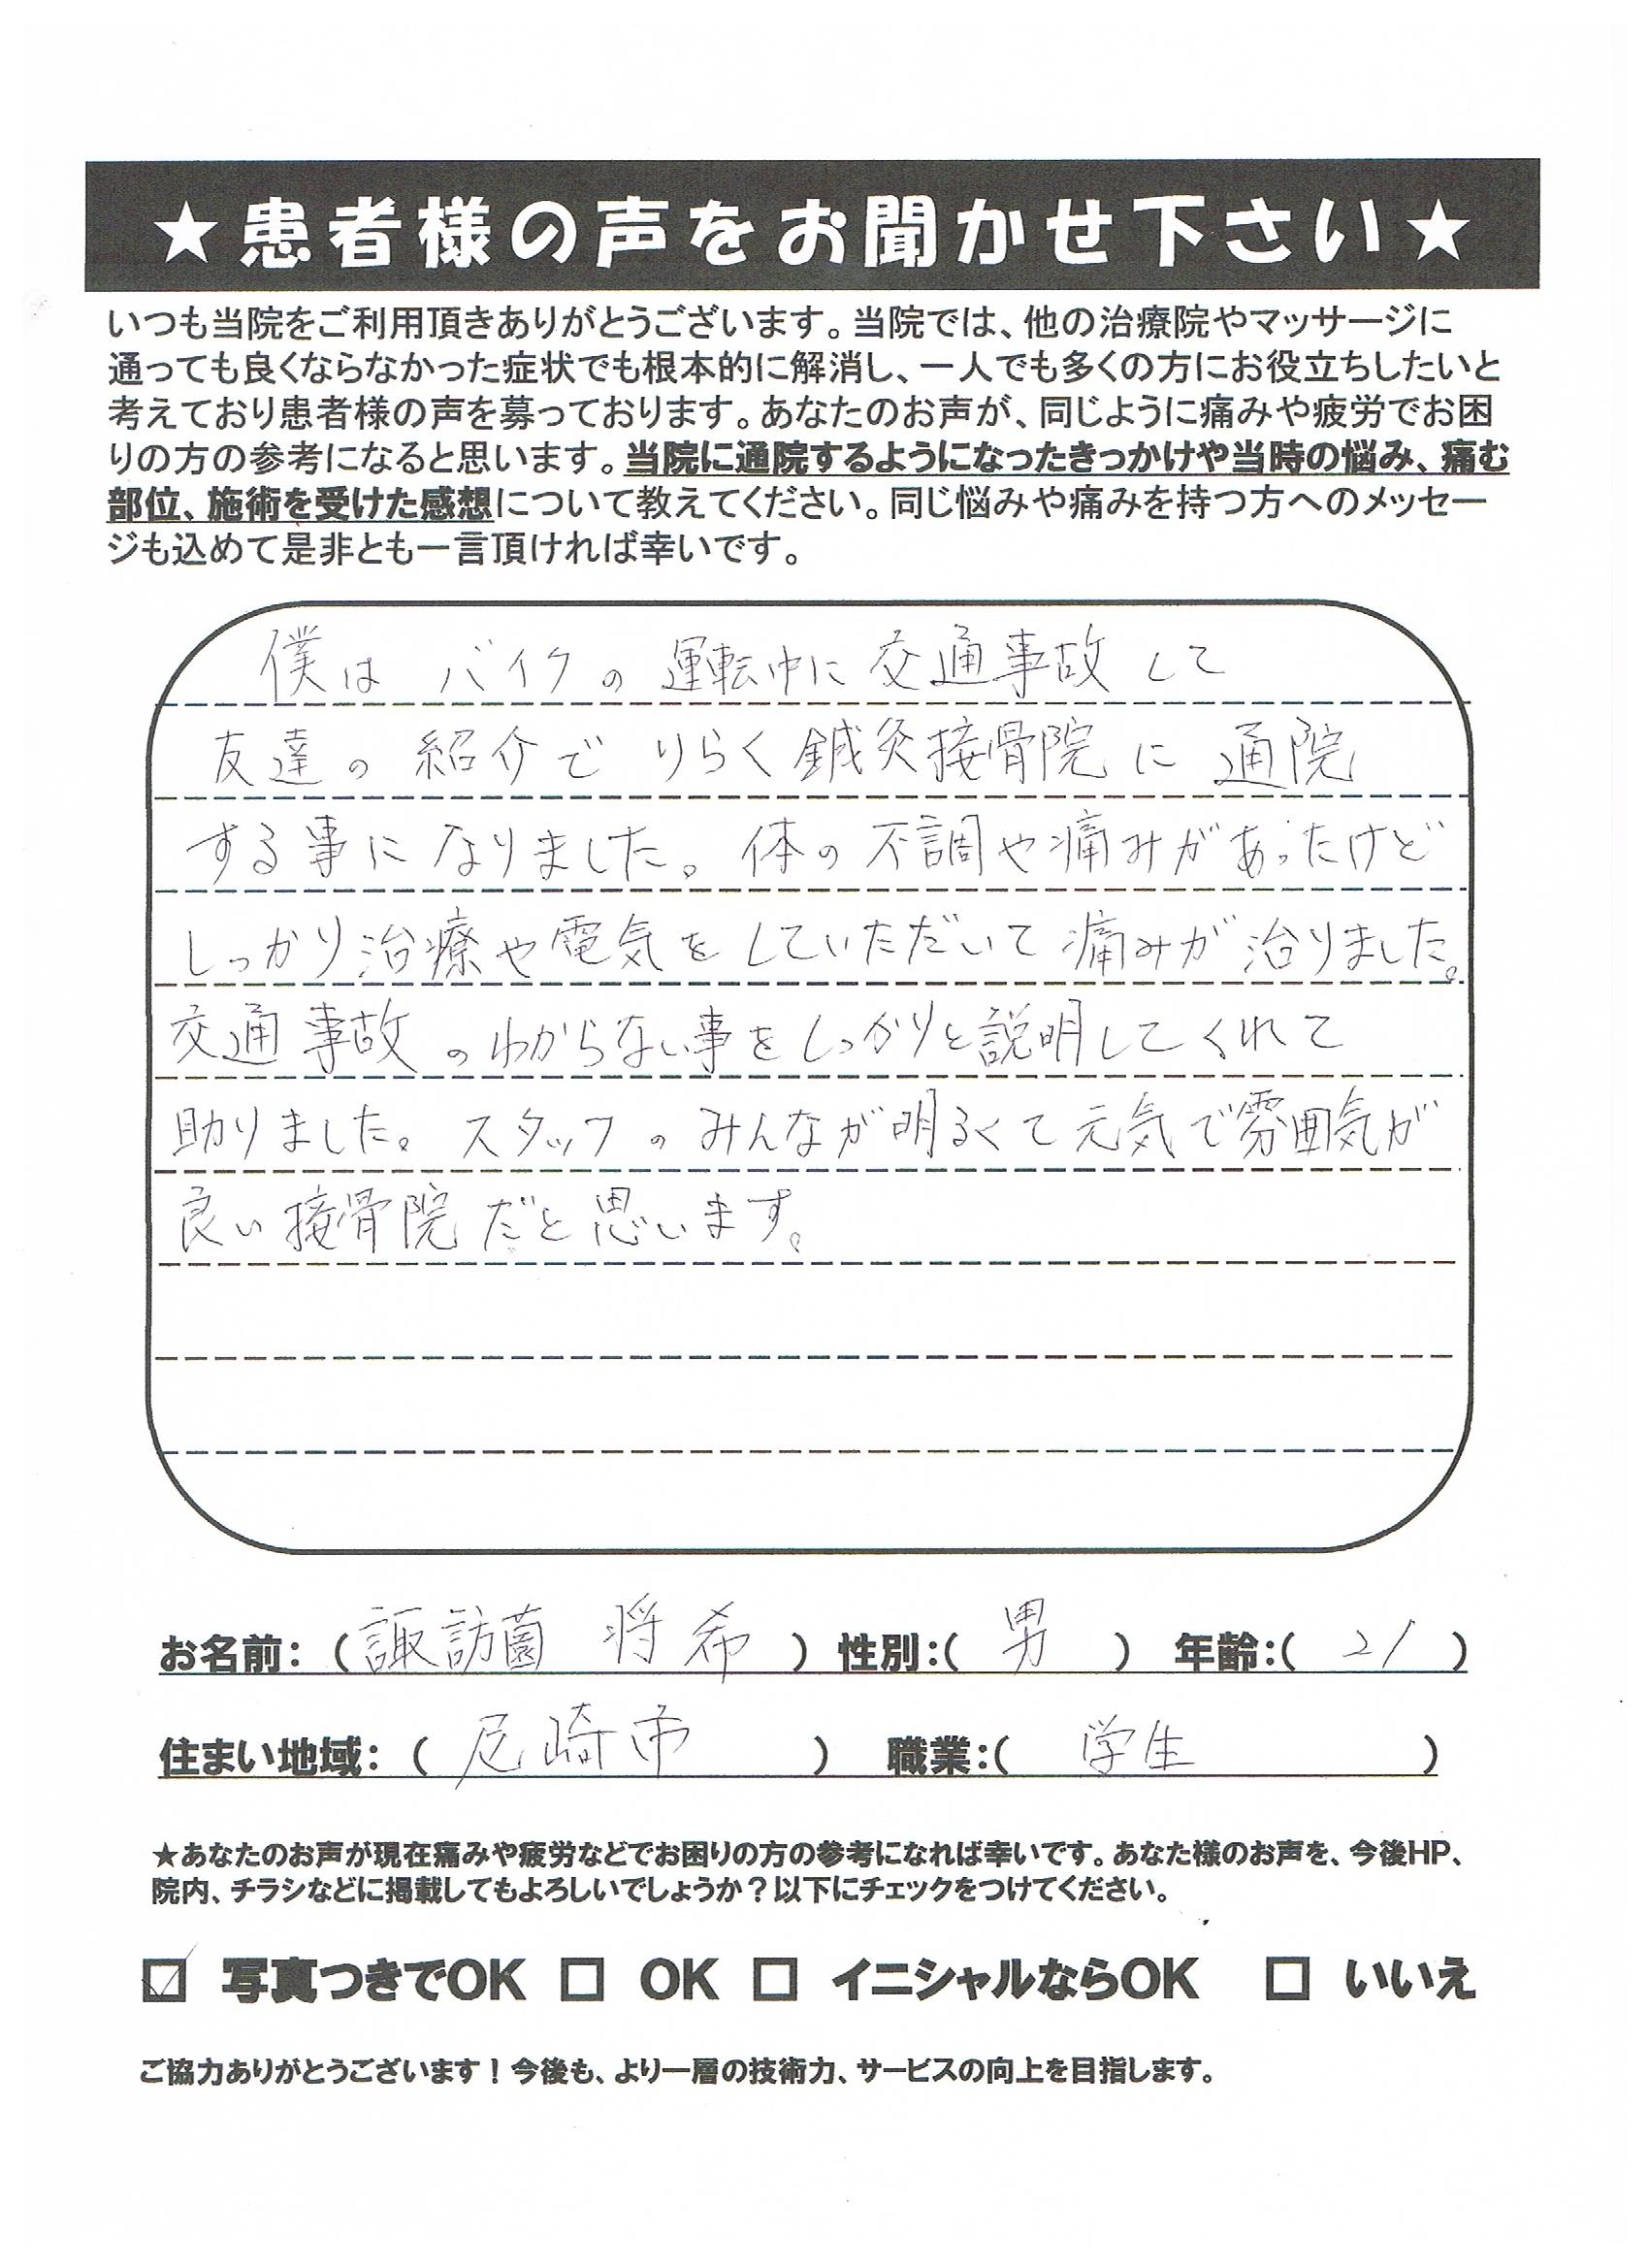 ★患者様の声をお聞かせ下さい★
いつも当院をご利用頂きありがとうございます。当院では、他の治療院やマッサージに
通っても良くならなかった症状でも根本的に解消し、一人でも多くの方にお役立ちしたいと
考えており患者様の声を募っております。あなたのお声が、同じように痛みや疲労でお困
りの方の参考になると思います。当院に通院するようになったきっかけや当時の悩み、痛む
部位、施術を受けた感想について教えてください。同じ悩みや痛みを持つ方へのメッセー
ジも込めて是非とも一言頂ければ幸いです。
僕は バイクの 運転中に 交通事故 して
友達の 紹介で りらく鍼灸接骨院 に 通院
する事に なりました。体の 不調や痛みがあったけど
しっかり治療や電気を していただいて 痛みが 治りました。
交通事故 のわからない事をしっかりと説明してくれて
助りました。スタッフ のみんなが明るくて元気で雰囲気が
良い接骨院だと思います。
お名前：（諏訪薗 将希）性別：（ 男 ）年齢：（ 21 ）
住まい地域：（ 尼崎市 ）職業：（ 学生 ）
★あなたのお声が現在痛みや疲労などでお困りの方の参考になれば幸いです。あなた様のお声を、今後HP、
院内、チラシなどに掲載してもよろしいでしょうか？以下にチェックをつけてください。
☑ 写真つきでOK □ OK □ イニシャルならOK □ いいえ
ご協力ありがとうございます！今後も、より一層の技術力、サービスの向上を目指します。